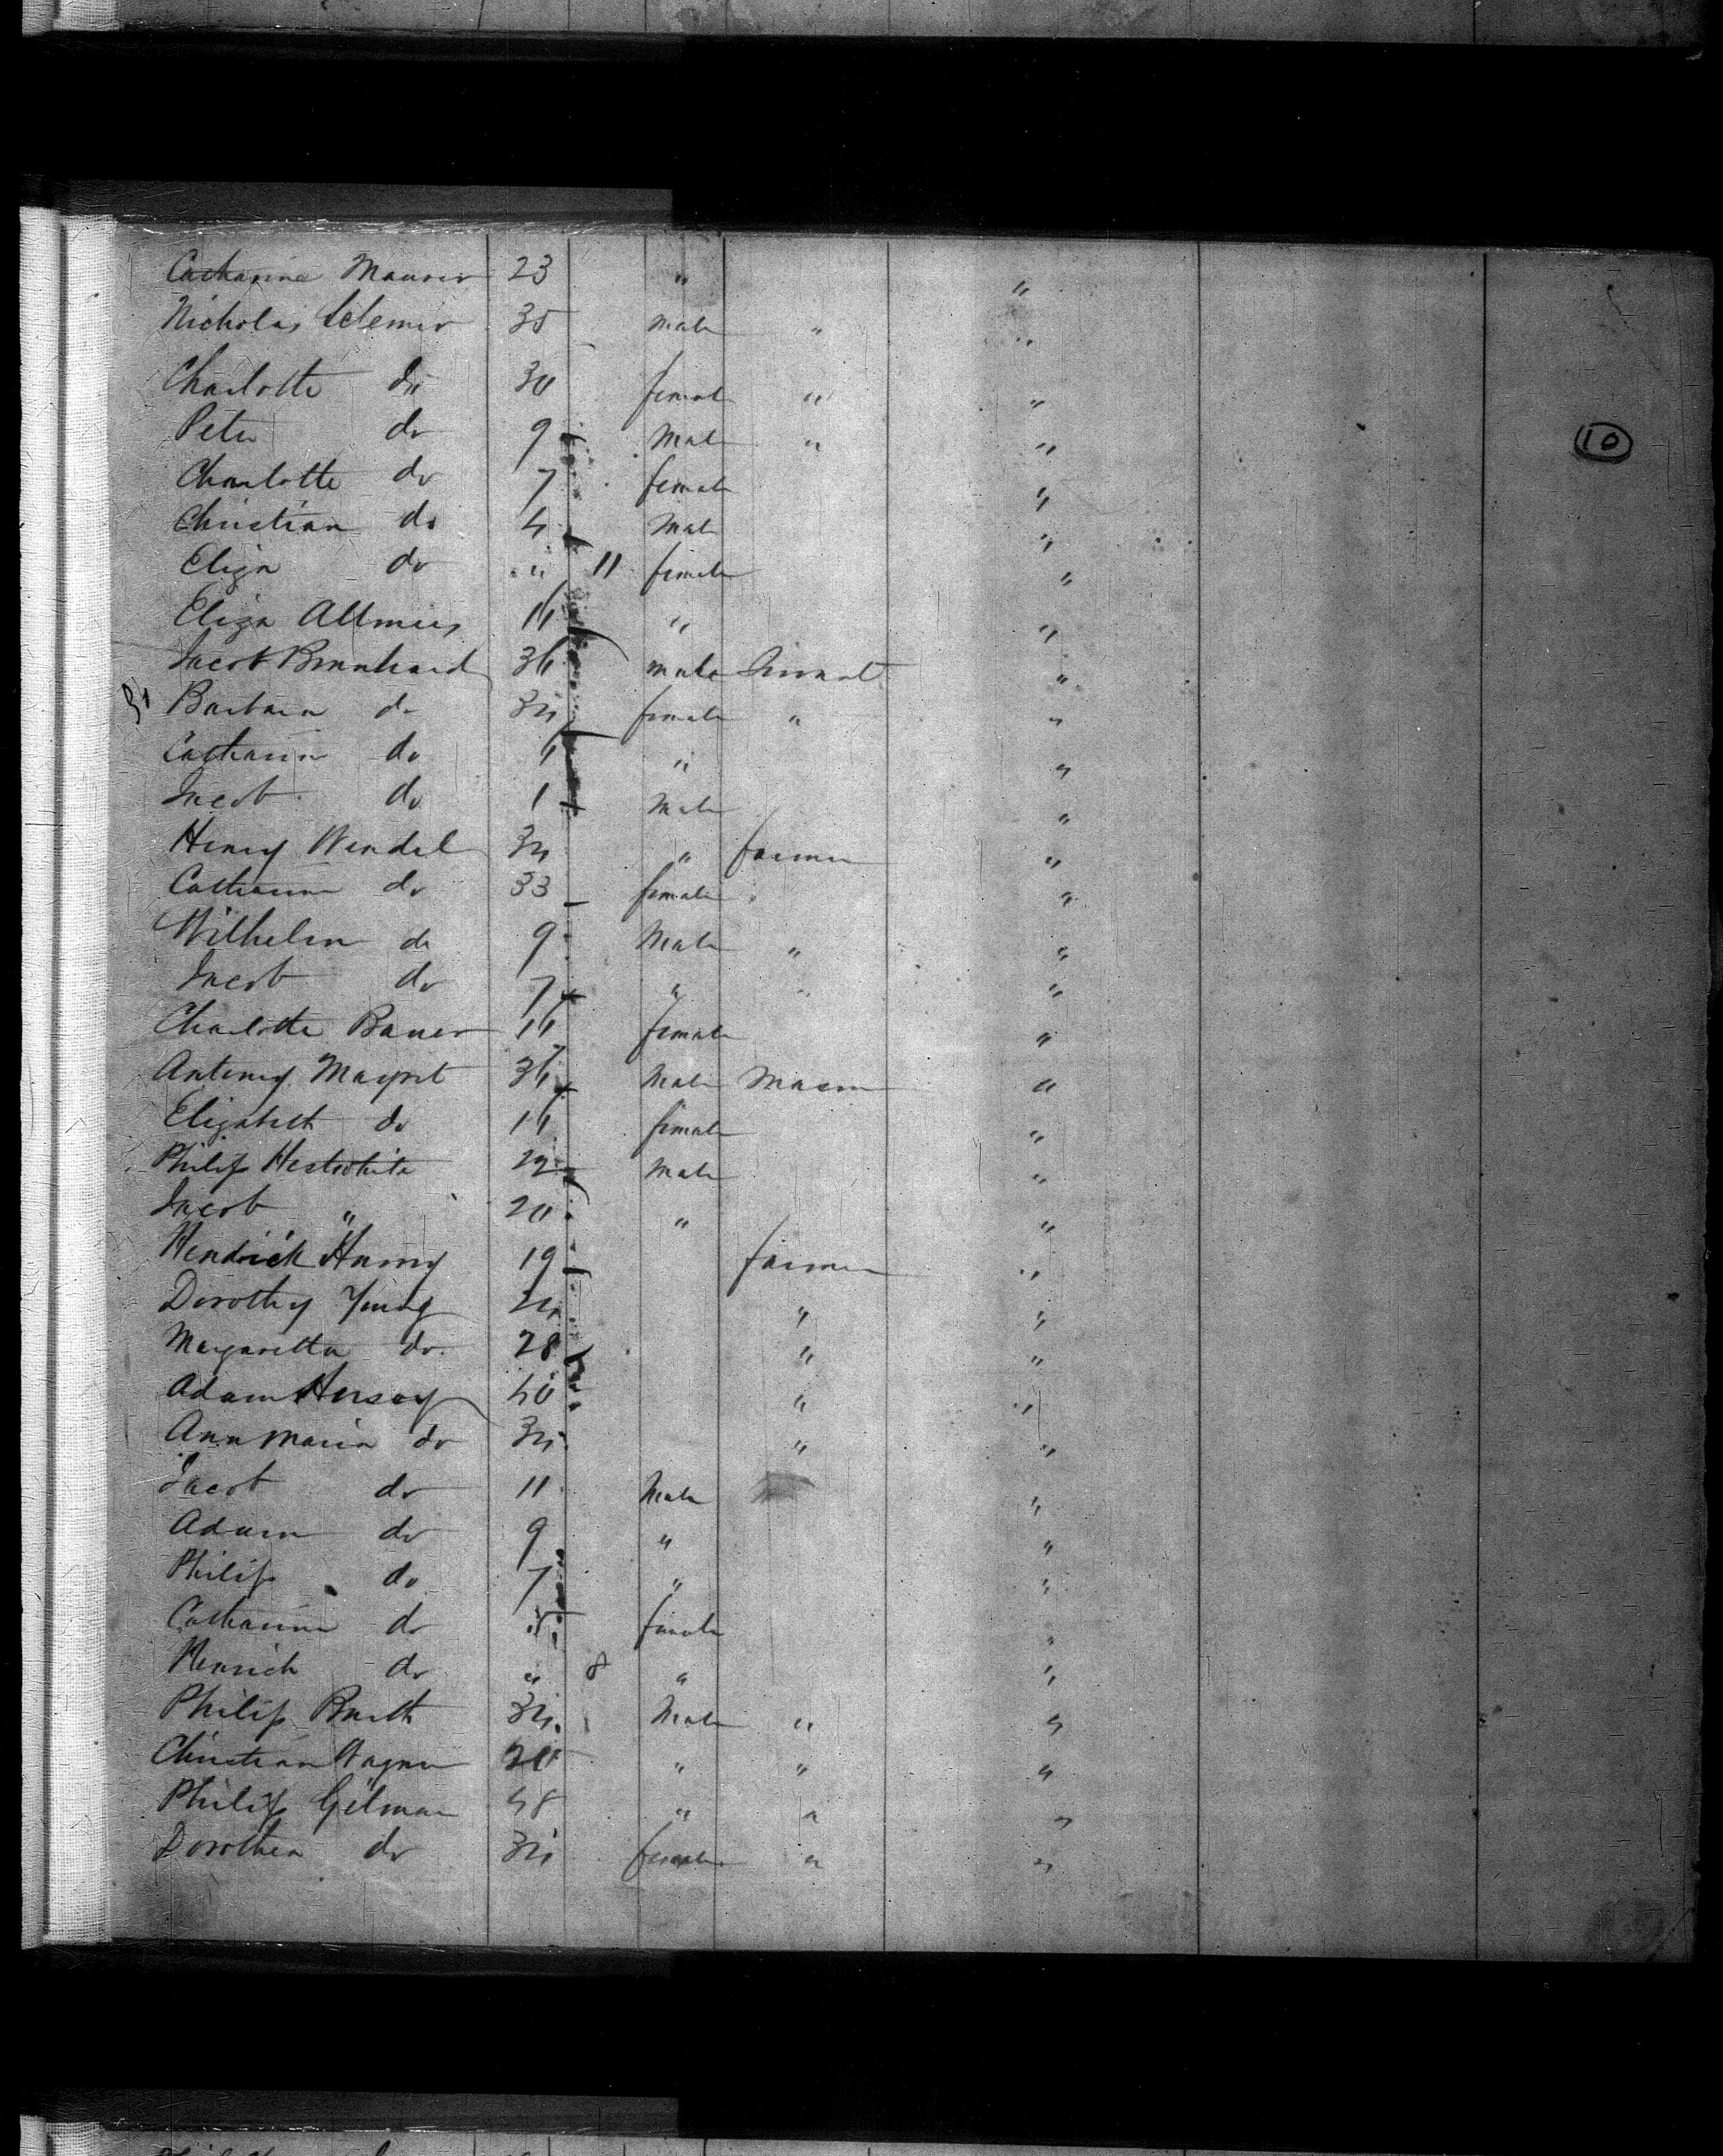 Catharine Maurer 23 " "
Nicholas Clemmer 35 Male " "
Charlotte do 30 female " "
Peter do 9 Male " " 10
Charlotte do 7 female "
Christian do 4 Male "
Eliza do " 11 female "
Eliza Altmies "  "
Jacob Bernhard male "
Barbara do 34 female " "
Catharina do " "
Jacob do 1 Male "
Henry Wendel 34 " farmer "
Catharina do 33 female "
Wilhelm do 9 Male " "
Jacob do 7 " "
Charlotte Bauer female "
Antony Male Mason "
Elizabeth do female "
Philip 22 Male "
Jacob " 20 " "
Hendrick 19 farmer "
Dorothy Young 24 " "
Margaretta do 28 " "
Adam 40 " "
Ann Maria do 34 " "
Jacob do 11 Male "
Adam do 9 " "
Philip do 7 " "
Catharina do 5 female "
Henrich do " 8 " "
Philip Barth 34 Male " "
Christian Wagner " " "
Philip Gilman 48 " " "
Dorothea do 34 female " "